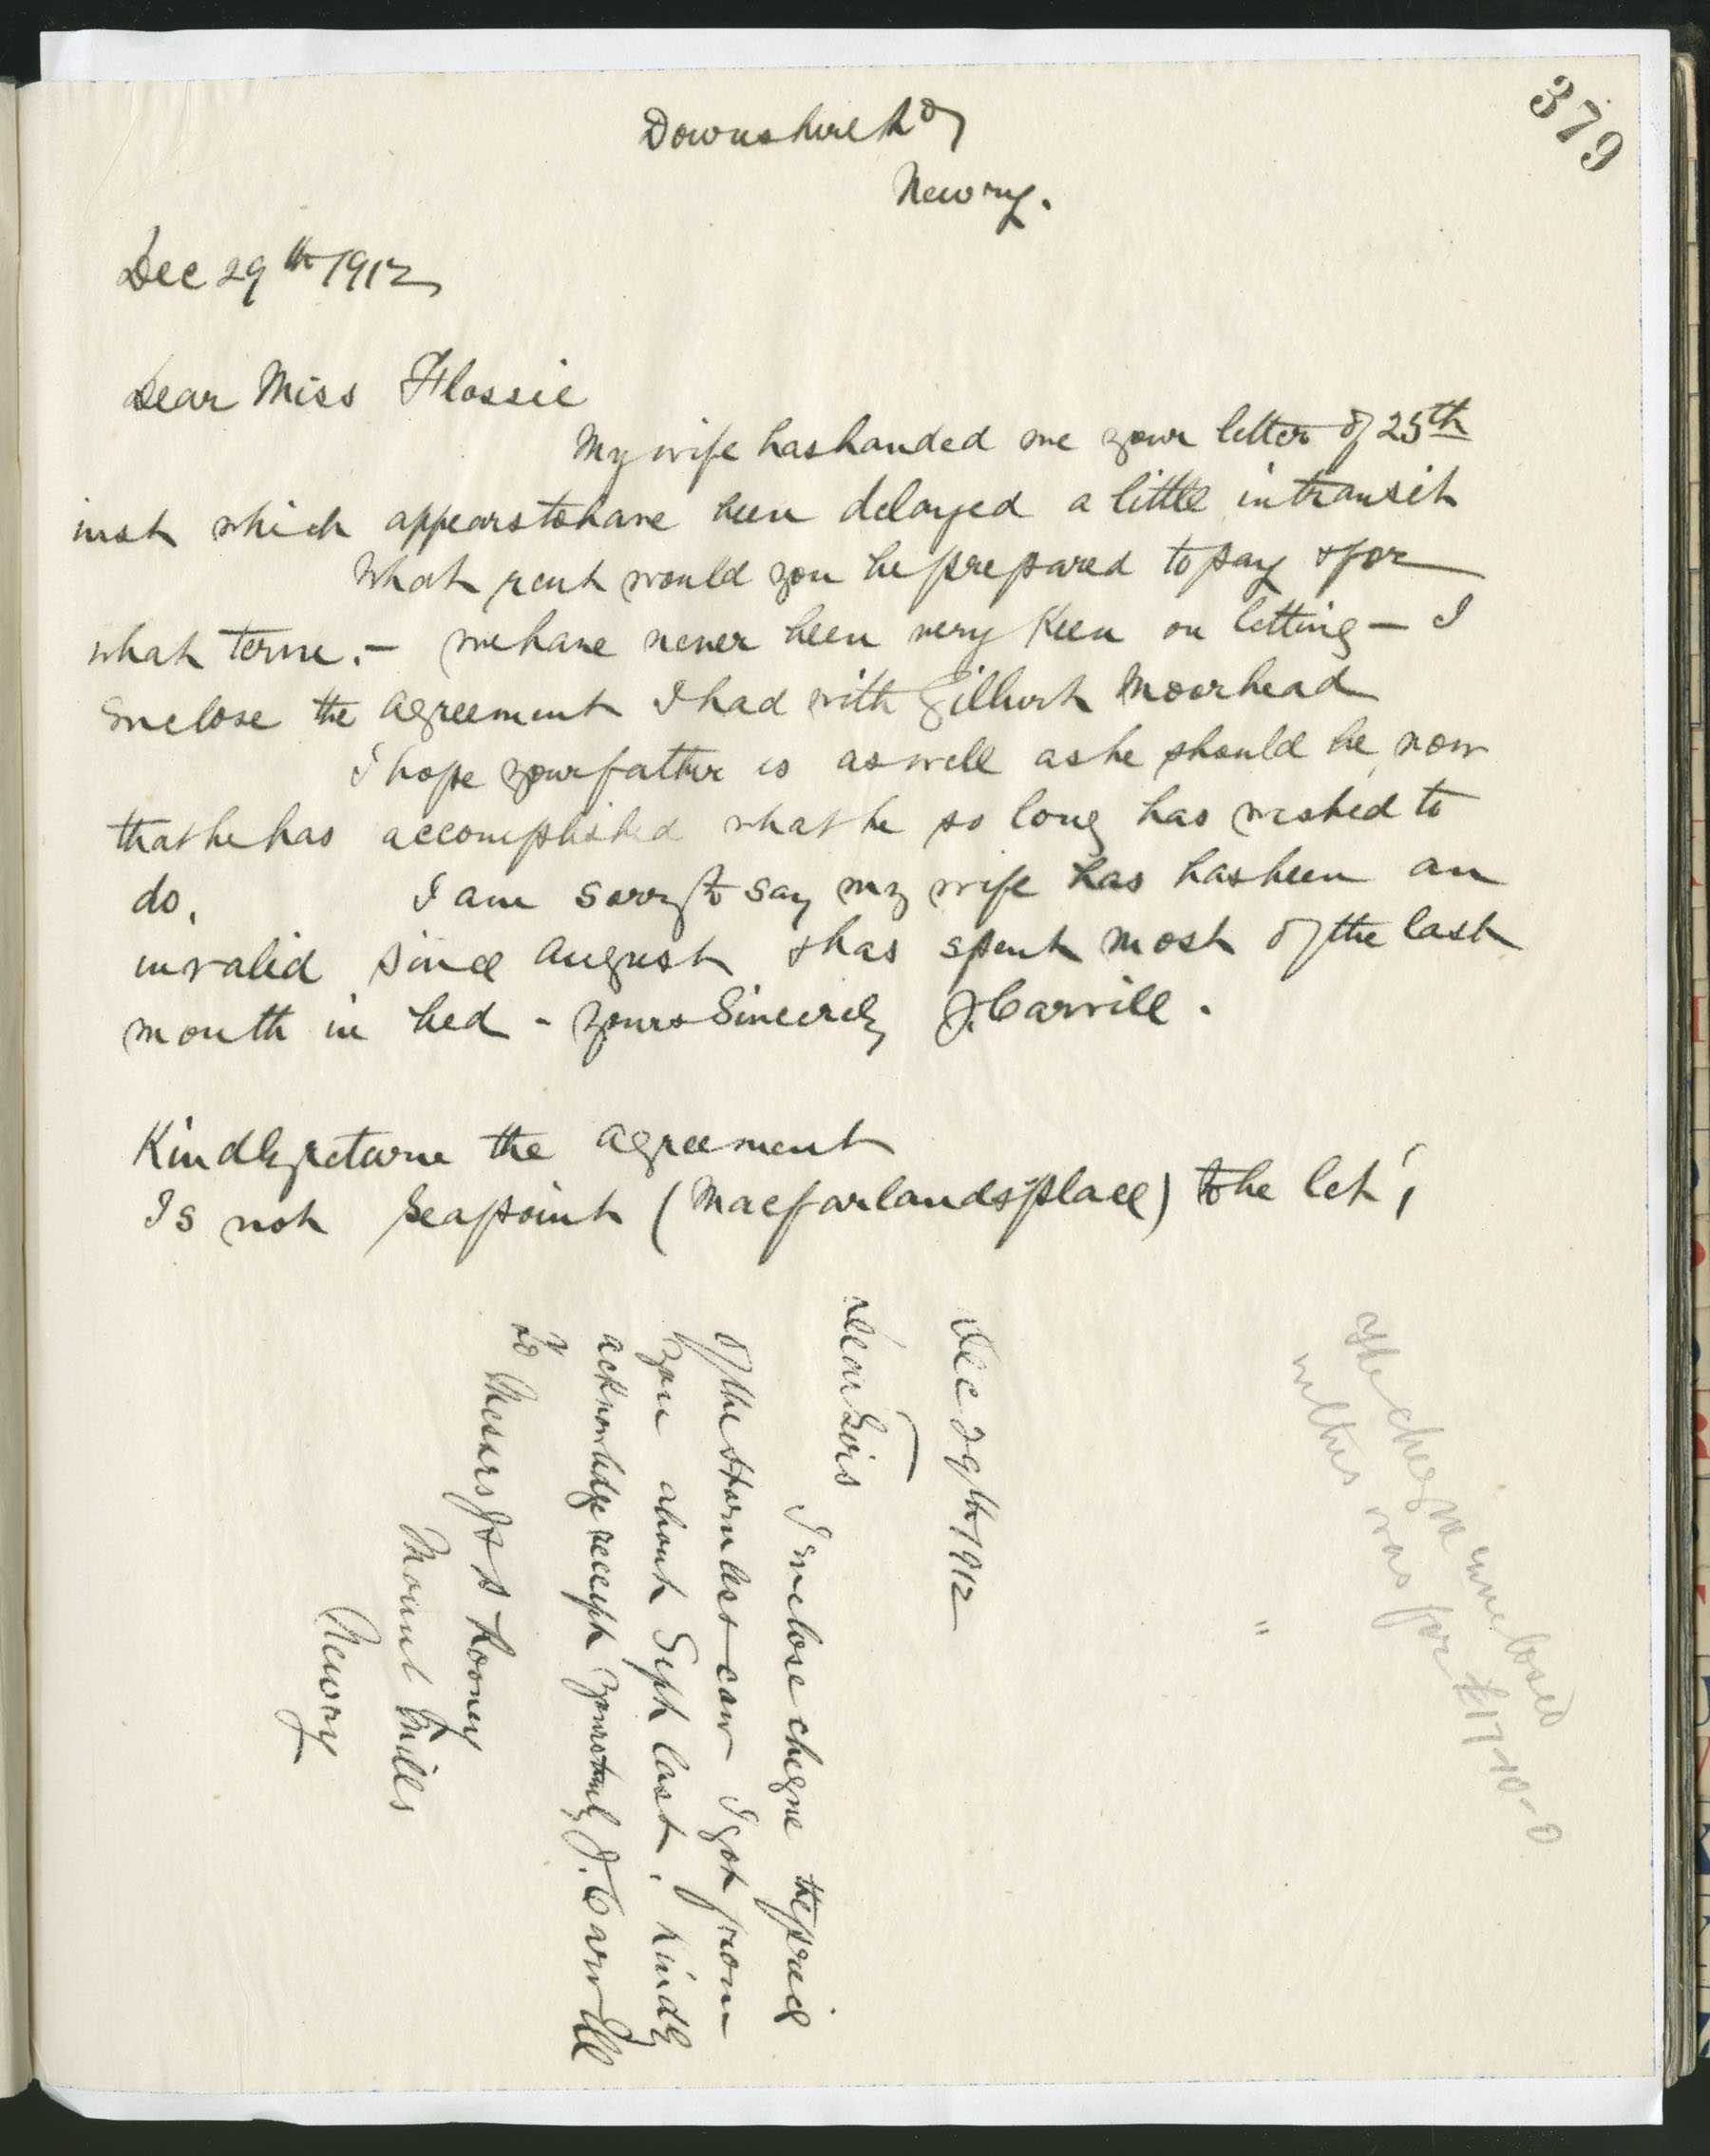 379
Downshire Rd
Newry.
Dec 29th 1912
Dear Miss Flossie
My wife has handed me your letter of 25th
inst which appears to have been delayed a little in transit
What rent would you be prepared to pay & for
what term. - we have never been very keen on letting - I
enclose the agreement I had with Gilbert Moorhead
I hope your father is as well as he should be now
that he has accomplished what he so long has wished to
do. I am sorry to say my wife has has been an
invalid since August & has spent most of the last
month in bed - Yours Sincerely J. Carvill.
Kindly return the agreement
Is not Seapoint (Macfarlands place) to be let?
Dec 29th 1912
Dear Sirs
I enclose cheque the price
of the Hornless cow I got from
you about Sept last. Kindly
acknowledge receipt Yours truly J. Carvill
To Messrs J & S Rooney
Mount Mills
Newry
The cheque enclosed
in this was for £17-10-0
"